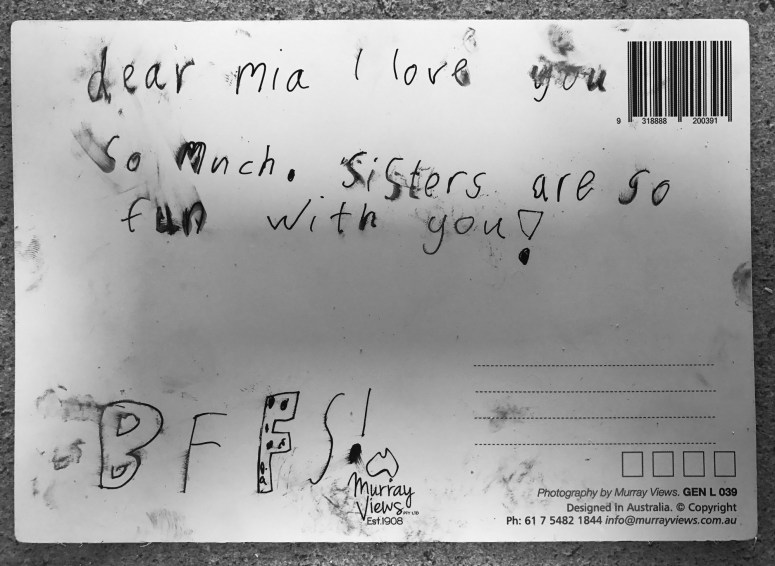 dear mia I love you
so much. Sisters are so
fun with you!
BFFS!
9 318888 200391
Murray
Views PTY LTD
Est.1908
Photography by Murray Views. GEN L 039
Designed in Australia. © Copyright
Ph: 61 7 5482 1844 info@murrayviews.com.au